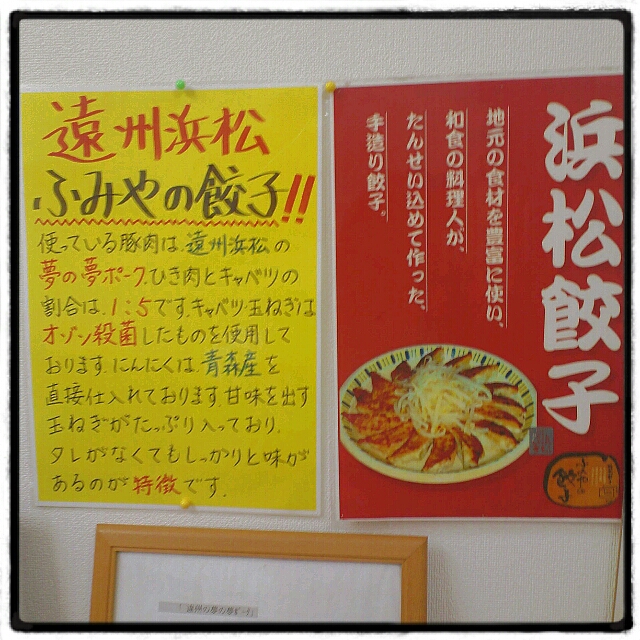 遠州浜松
ふみやの餃子!!
使っている豚肉は、遠州浜松の
夢の夢ポーク。ひき肉とキャベツの
割合は、1:5です。キャベツ玉ねぎは
オゾン殺菌したものを使用して
おります。にんにくは、青森産を
直接仕入れております。甘味を出す
玉ねぎがたっぷり入っており、
タレがなくてもしっかりと味が
あるのが特徴です。
浜松餃子
地元の食材を豊富に使い、
和食の料理人が、
たんせい込めて作った、
手造り餃子。